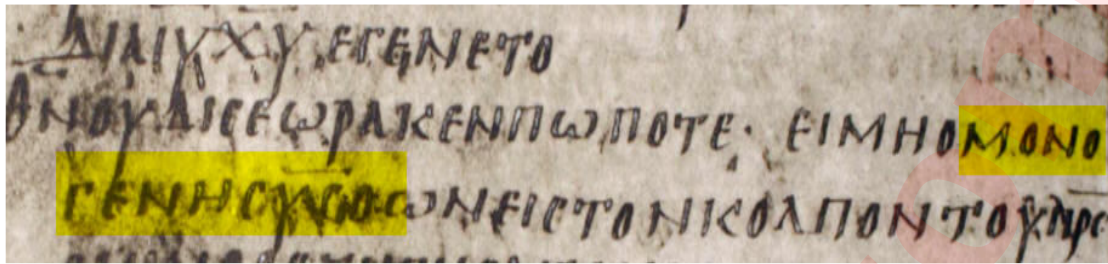 ΔΙΑΙΥΧΥΕΓΕΝΕΤΟ
ΘΝΟΥΔΙϹΕΩΡΑΚΕΝΠΩΠΟΤΕ· ΕΙΜΗΟΜΟΝΟ
ΓΕΝΗϹΥϹΟΩΝΕΙϹΤΟΝΚΟΛΠΟΝΤΟΥΠΡϹ